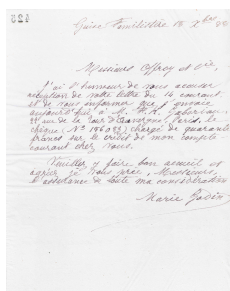 425
Guise Familistère 18 Xbre
Messieurs Offroy et Cie,
J'ai l'honneur de vous accuser
réception de votre lettre du 14 courant
et de vous informer que j'envoie
aujourd'hui à M.
rue de la Tour d'Auvergne, Paris, le
chèque (No ) chargé de quarante
francs sur le crédit de mon compte
courant chez vous.
Veuillez y faire bon accueil et
agréer je vous prie, Messieurs,
l'assurance de toute ma considération
Marie Godin